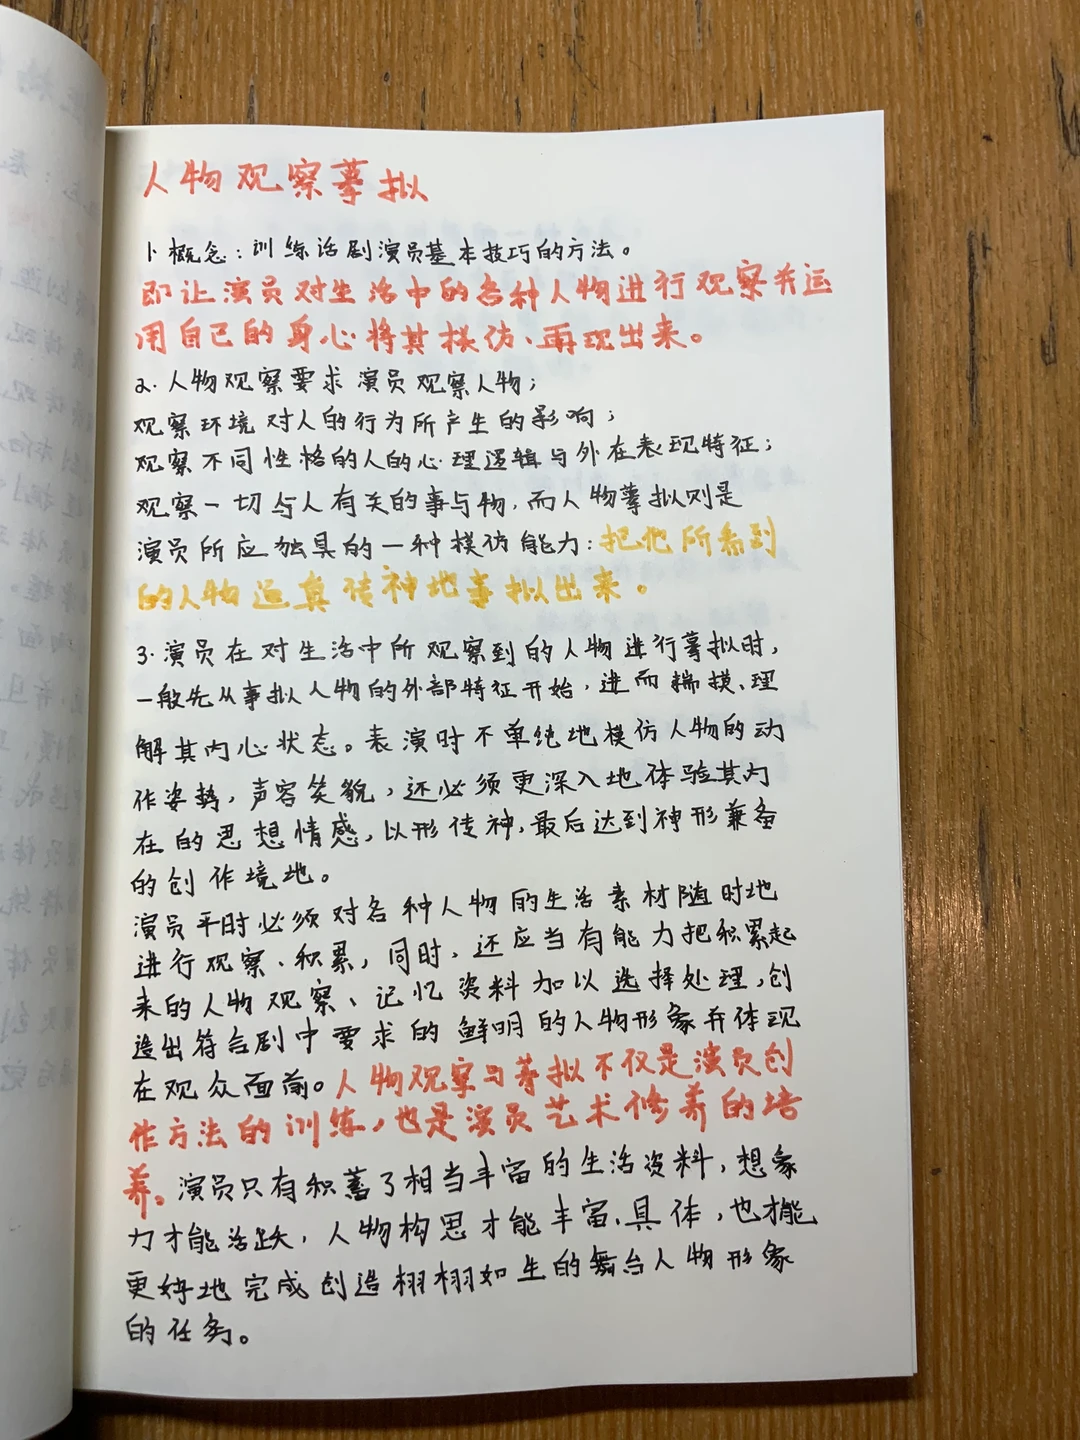 人物观察摹拟
1.概念：训练话剧演员基本技巧的方法。
即让演员对生活中的各种人物进行观察并运
用自己的身心将其模仿、再现出来。
2.人物观察要求演员观察人物；
观察环境对人的行为所产生的影响；
观察不同性格的人的心理逻辑与外在表现特征；
观察一切与人有关的事与物，而人物摹拟则是
演员所应独具的一种模仿能力：把他所看到
的人物逼真传神地摹拟出来。
3.演员在对生活中所观察到的人物进行摹拟时，
一般先从摹拟人物的外部特征开始，进而揣摸、理
解其内心状态。表演时不单纯地模仿人物的动
作姿势，声容笑貌，还必须更深入地体验其内
在的思想情感，以形传神，最后达到神形兼备
的创作境地。
演员平时必须对各种人物的生活素材随时地
进行观察、积累，同时，还应当有能力把积累起
来的人物观察、记忆资料加以选择处理，创
造出符合剧中要求的鲜明的人物形象并体现
在观众面前。人物观察与摹拟不仅是演员创
作方法的训练，也是演员艺术修养的培
养。演员只有积蓄了相当丰富的生活资料，想象
力才能活跃，人物构思才能丰富、具体，也才能
更好地完成创造栩栩如生的舞台人物形象
的任务。